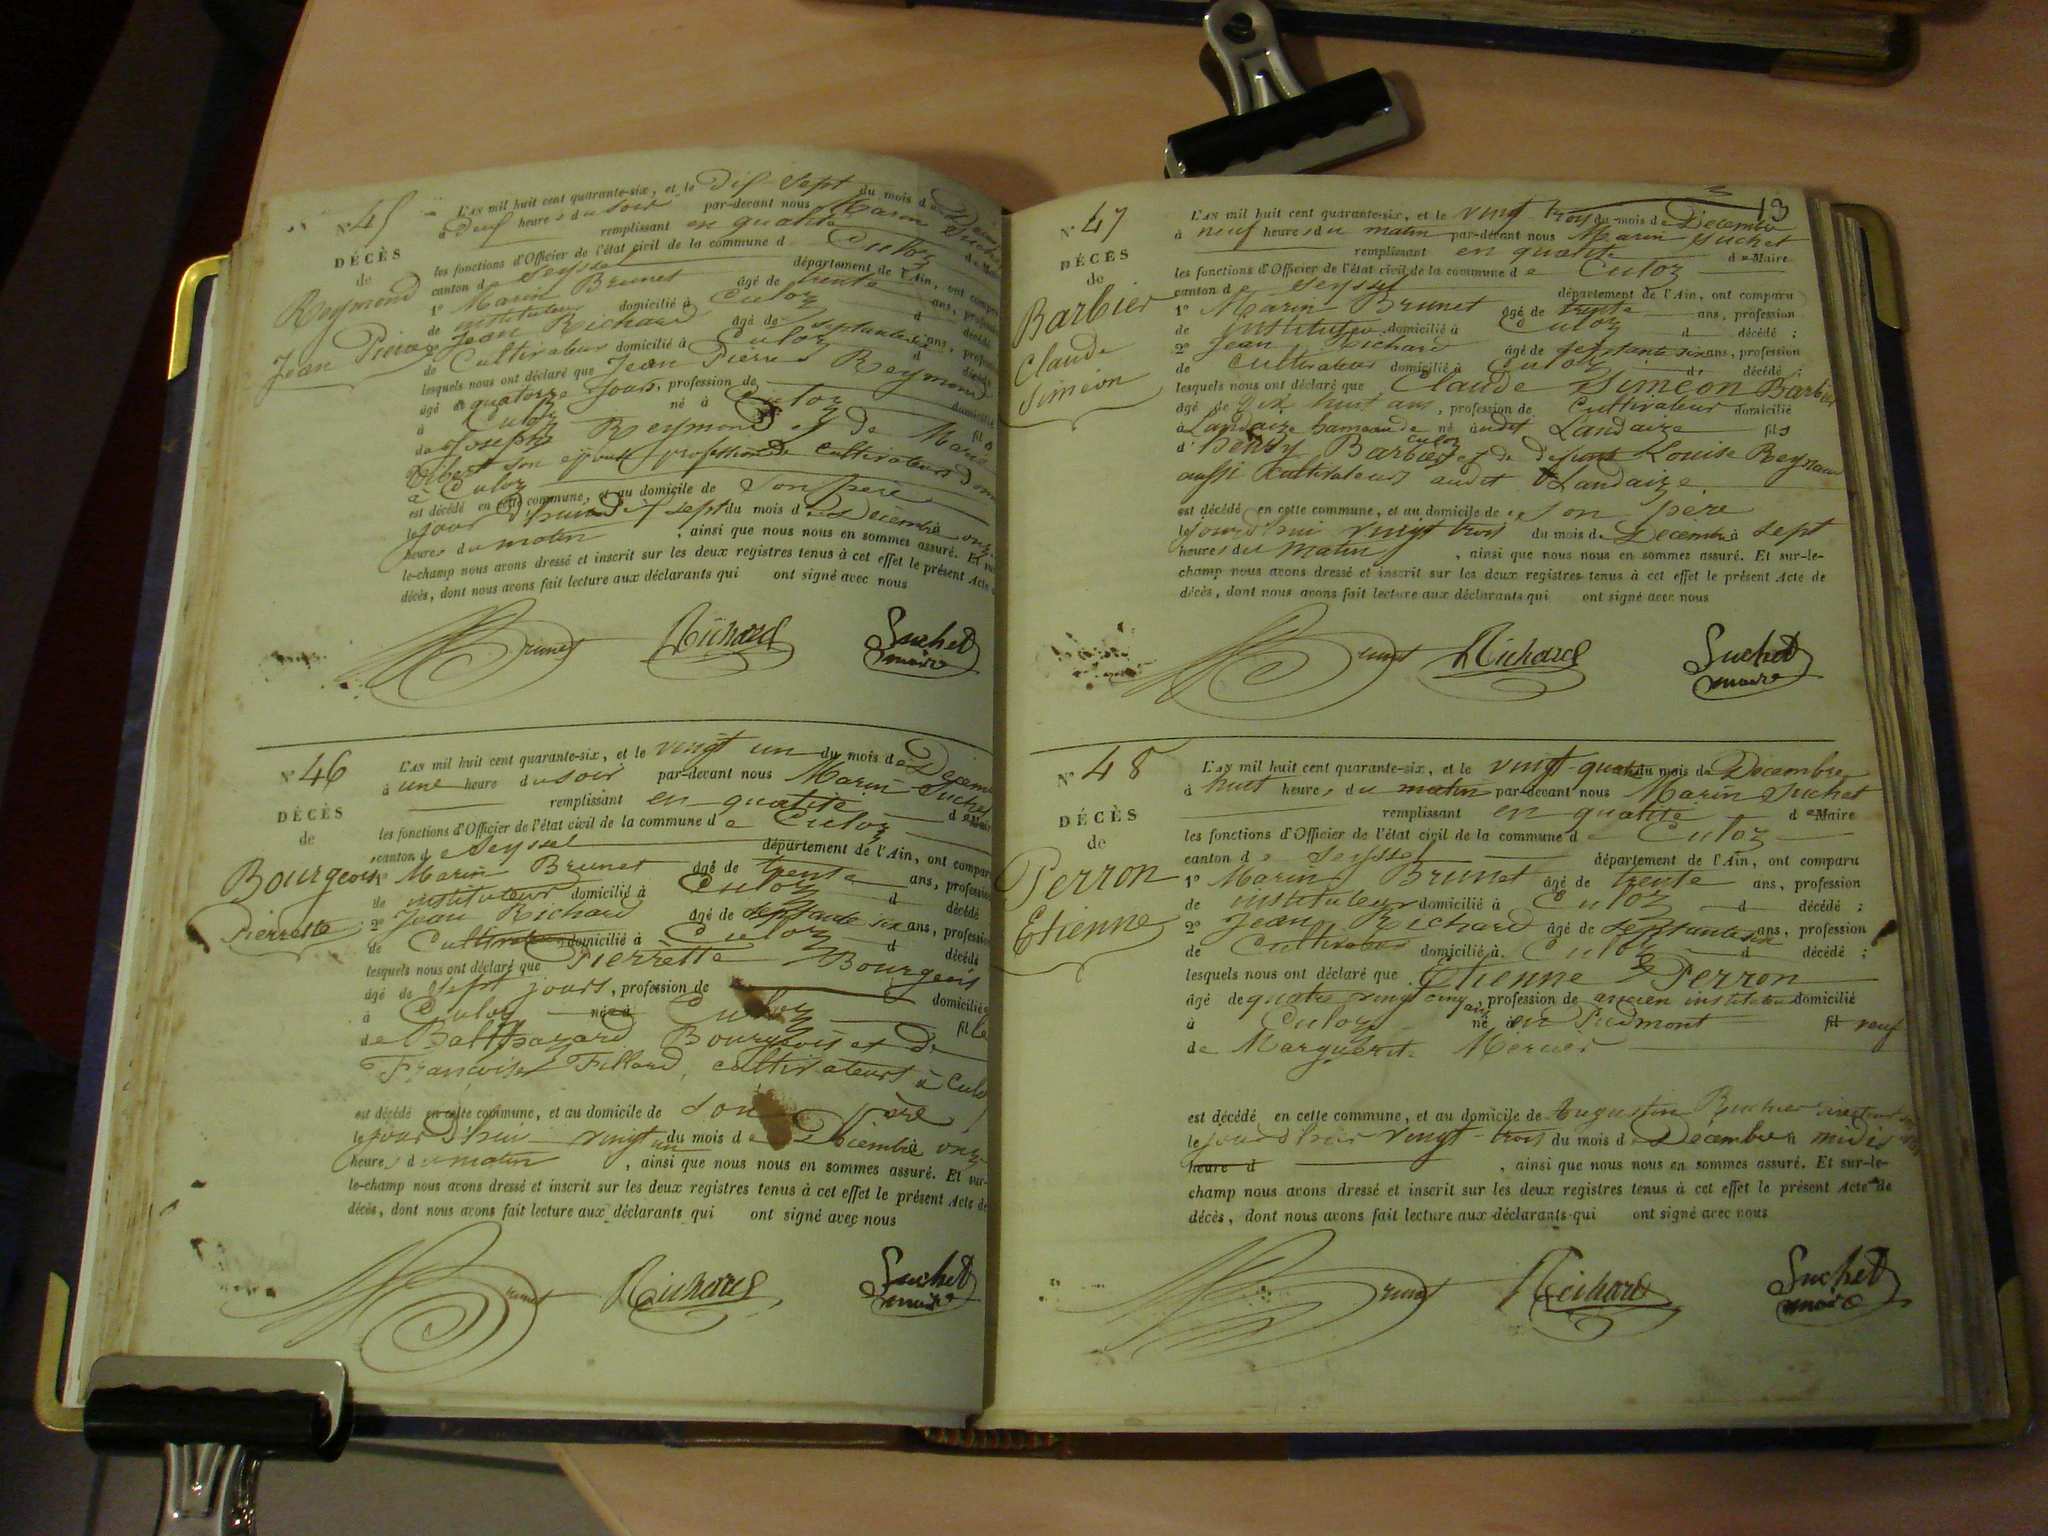 N° 45
DÉCÈS
de
Reymond
Jean Pierre
L'AN mil huit cent quarante-six, et le dix sept du mois de
à deux heures du soir par-devant nous Marin Suchet
remplissant en qualité de Maire
les fonctions d'Officier de l'état civil de la commune d Culoz
canton de Seyssel département de l'Ain, ont comparu
1° Marin Brunet âgé de trente ans, profession
de instituteur domicilié à Culoz d décédé
2° Jean Richard âgé de septante six ans, profession
de Cultivateur domicilié à Culoz d décédé
lesquels nous ont déclaré que Jean Pierre Reymond
âgé de quatorze jours, profession de domicilié
à Culoz né à Culoz fils
de Joseph Reymond et de Marie
son épouse profession de cultivateurs
à Culoz
est décédé en cette commune, et au domicile de son père
le jour d'hui dix sept du mois de Décembre à onze
heures du matin , ainsi que nous nous en sommes assuré. Et sur
le-champ nous avons dressé et inscrit sur les deux registres tenus à cet effet le présent Acte de
décès, dont nous avons fait lecture aux déclarants qui ont signé avec nous
Brunet Richard Suchet
maire
N° 46
DÉCÈS
de
Bourgeois
Pierrette
L'AN mil huit cent quarante-six, et le vingt un du mois de Décembre
à une heure du soir par-devant nous Marin Suchet
remplissant en qualité de Maire
les fonctions d'Officier de l'état civil de la commune de Culoz
canton de Seyssel département de l'Ain, ont comparu
1° Marin Brunet âgé de trente ans, profession
de instituteur domicilié à Culoz d décédé
2° Jean Richard âgé de septante six ans, profession
de Cultivateur domicilié à Culoz d décédé
lesquels nous ont déclaré que Pierrette Bourgeois
âgé de sept jours, profession de domiciliée
à Culoz née à Culoz fille
de Balthazard Bourgeois et de
Françoise Fillard, cultivateurs à Culoz
est décédé en cette commune, et au domicile de son père
le jour d'hui vingt un du mois de Décembre à onze
heures du matin , ainsi que nous nous en sommes assuré. Et sur-
le-champ nous avons dressé et inscrit sur les deux registres tenus à cet effet le présent Acte de
décès, dont nous avons fait lecture aux déclarants qui ont signé avec nous
Brunet Richard Suchet
maire
13
N° 47
DÉCÈS
de
Barbier
Claude
Siméon
L'AN mil huit cent quarante-six, et le vingt trois du mois de Décembre
à neuf heures du matin par-devant nous Marin Suchet
remplissant en qualité de Maire
les fonctions d'Officier de l'état civil de la commune de Culoz
canton de Seyssel département de l'Ain, ont comparu
1° Marin Brunet âgé de trente ans, profession
de instituteur domicilié à Culoz d décédé ;
2° Jean Richard âgé de septante six ans, profession
de cultivateur domicilié à Culoz d décédé ;
lesquels nous ont déclaré que Claude Siméon Barbier
âgé de dix huit ans, profession de Cultivateur domicilié
à Landaize hameau de Culoz né audit Landaize fils
d' Henry Barbier et de défunte Louise Reynaud
aussi Cultivateurs audit Landaize
est décédé en cette commune, et au domicile de son père
le jourd'hui vingt trois du mois de Décembre à sept
heures du matin , ainsi que nous nous en sommes assuré. Et sur-le-
champ nous avons dressé et inscrit sur les deux registres tenus à cet effet le présent Acte de
décès, dont nous avons fait lecture aux déclarants qui ont signé avec nous
Brunet Richard Suchet
maire
N° 48
DÉCÈS
de
Perron
Etienne
L'AN mil huit cent quarante-six, et le vingt-quatre du mois de Décembre
à huit heures du matin par-devant nous Marin Suchet
remplissant en qualité de Maire
les fonctions d'Officier de l'état civil de la commune de Culoz
canton de Seyssel département de l'Ain, ont comparu
1° Marin Brunet âgé de trente ans, profession
de instituteur domicilié à Culoz d décédé ;
2° Jean Richard âgé de septante six ans, profession
de Cultivateur domicilié à Culoz d décédé ;
lesquels nous ont déclaré que Etienne Perron
âgé de quatre vingt cinq ans, profession de ancien instituteur domicilié
à Culoz né en Piedmont fil veuf
de Marguerite Mercier
est décédé en cette commune, et au domicile de Augustin
le jour d'hui vingt-trois du mois de Décembre à midi
heure d , ainsi que nous nous en sommes assuré. Et sur-le-
champ nous avons dressé et inscrit sur les deux registres tenus à cet effet le présent Acte de
décès, dont nous avons fait lecture aux déclarants qui ont signé avec nous
Brunet Richard Suchet
maire